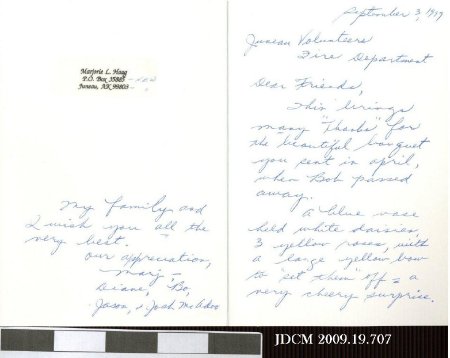 September 3, 1997
Juneau Volunteers
Fire Department
Dear Friends,
This brings
many "Thanks" for
the beautiful bouquet
you sent in April,
when Bob passed
away.
A blue vase
held white daisies,
3 yellow roses, with
a large yellow bow
to "set them" off = a
very cheery surprise.
Marjorie L. Haug
P.O. Box 35885 - new
Juneau, AK 99803 -
My family and
I wish you all the
very best.
Our appreciation,
Marj, -
Diane, Bo,
Jason, & Josh McAdoo
JDCM 2009.19.707